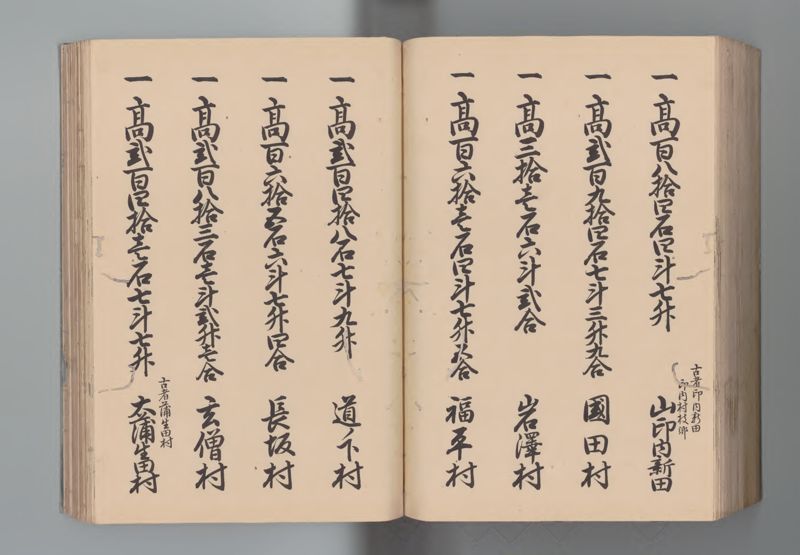 一 高百八拾四石四斗七升
古者印内新田
印内村枝郷
山印内新田
一 高弐百九拾四石七斗三升九合
國田村
一 高三拾壱石六斗弐合
岩澤村
一 高百六拾壱石四斗七升五合
福平村
一 高弐百四拾八石七斗九升
道ノ下村
一 高百六拾五石六斗七升四合
長坂村
一 高弐百八拾三石壱斗弐升壱合
玄僧村
一 高弐百四拾壱石七斗七升
古者蒲生田村
大蒲生田村